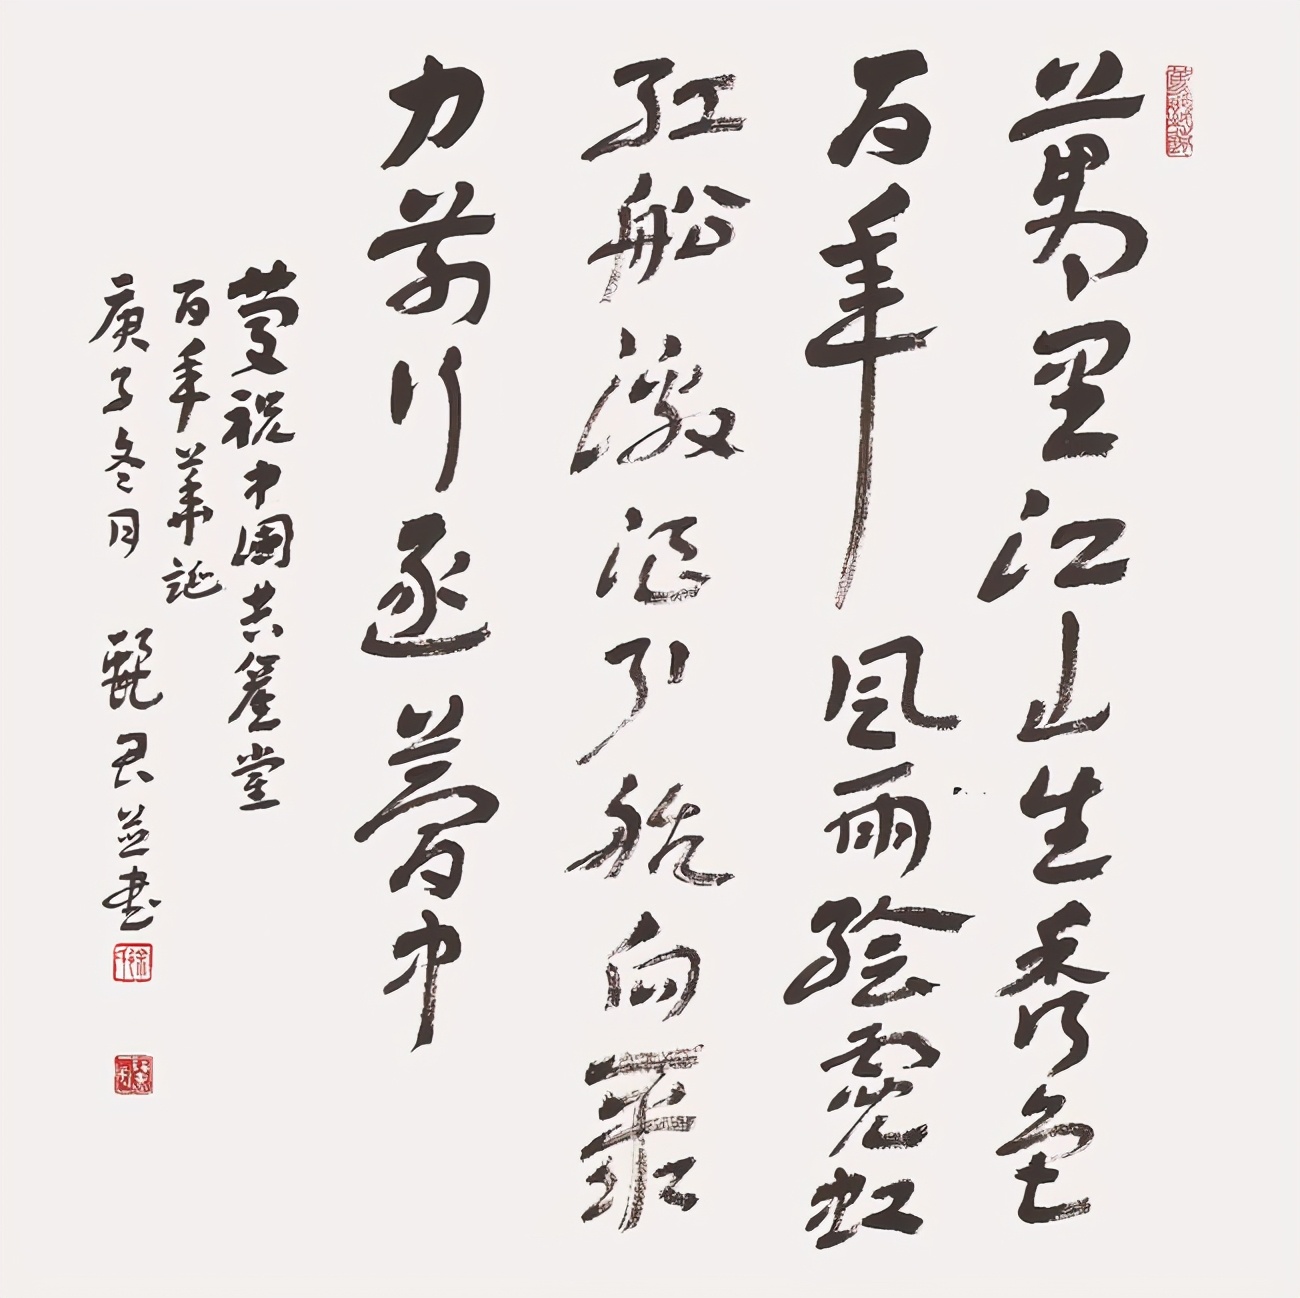 萬里江山生秀色
百年風雨繪霓虹
紅船激浪引航向
力前行逐夢中
慶祝中國共產黨
百年華誕
庚子冬月 麗君並書